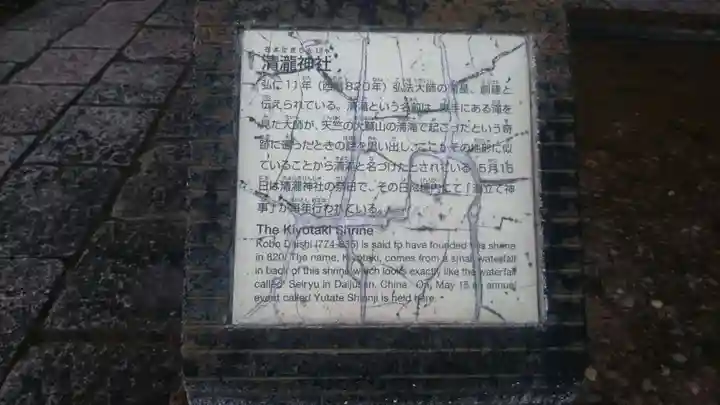 清瀧神社
弘仁11年（西暦820年）弘法大師の 創建と
伝えられている。清滝という名前は、裏手にある滝を
見た大師が、天竺の大鷲山の清滝で起こったという奇
跡に遭ったときの話を思い出し、ここがその地形に似
ていることから清滝と名づけたとされている。5月15
日は清瀧神社の祭日で、その日は境内にて「湯立て神
事」が毎年行われている。
The Kiyotaki Shrine
Kobo Daishi (774-835) is said to have founded this shrine
in 820. The name, Kiyotaki, comes from a small waterfall
in back of this shrine which looks exactly like the waterfall
called Seiryu in Daijusan, China. On May 15 an annual
event called Yutate Shinji is held here.